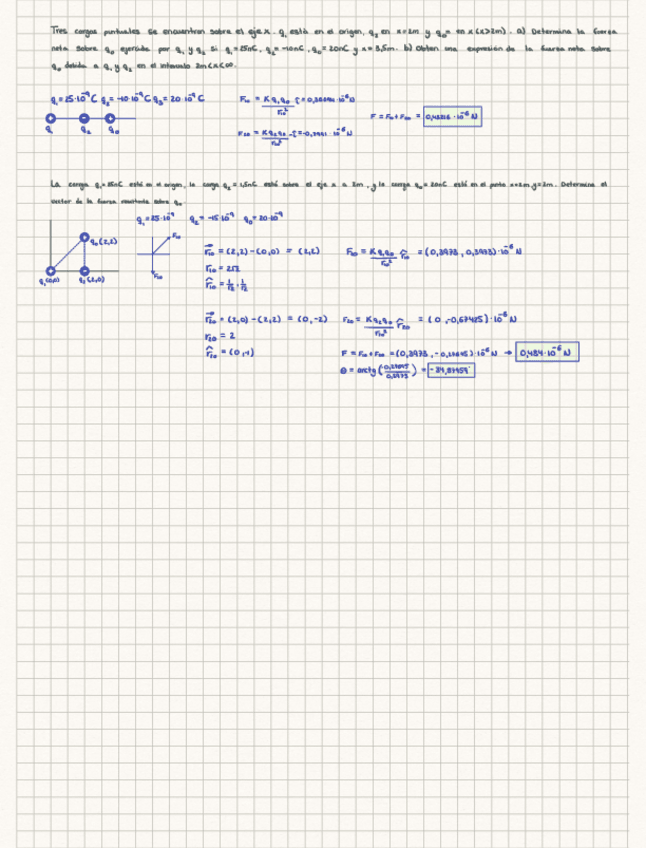 Tres cargas puntuales se encuentran sobre el eje x. q₁ está en el origen, q₂ en x=2m y q₀ en x (x>2m). a) Determina la fuerza
neta sobre q₀ ejercida por q₁ y q₂ si q₁=25nC, q₂=-10nC, q₀=20nC y x=3,5m. b) Obten una expresión de la fuerza neta sobre
q₀ debida a q₁ y q₂ en el intervalo 2m<x<∞.
q₁=25·10⁻⁹C q₂=-10·10⁻⁹C q₃=20·10⁻⁹C
F₁₀ = K q₁q₀ / r₁₀²
F = F₁₀+F₂₀ =
q₁ q₂ q₀
F₂₀ = K q₂q₀ / r₂₀²
La carga q₁=25nC está en el origen, la carga está sobre el eje x a 2m, y la carga q₀=20nC está en el punto x=2m,y=2m. Determina el
vector de la fuerza resultante sobre q₀.
q₁=25·10⁻⁹ q₂=-15·10⁻⁹ q₀=20·10⁻⁹
q₀(2,2)
F₁₀
F₂₀
q₁(0,0) (2,0)
r₁₀ = (2,2)-(0,0) = (2,2) F₁₀ = K q₁q₀ / r₁₀² r̂₁₀ = (0,3973, 0,3973)·10⁻⁶ N
r₁₀ = 2√2
r̂₁₀ = 1/√2, 1/√2
r₂₀ = (2,0)-(2,2) = (0,-2) F₂₀ = K q₂q₀ / r₂₀² r̂₂₀ = (0, -0,67425)·10⁻⁶ N
r₂₀ = 2
r̂₂₀ = (0,-1)
F = F₁₀+F₂₀ = (0,3973, )·10⁻⁶ N → 0,484·10⁻⁶ N
θ = arctg